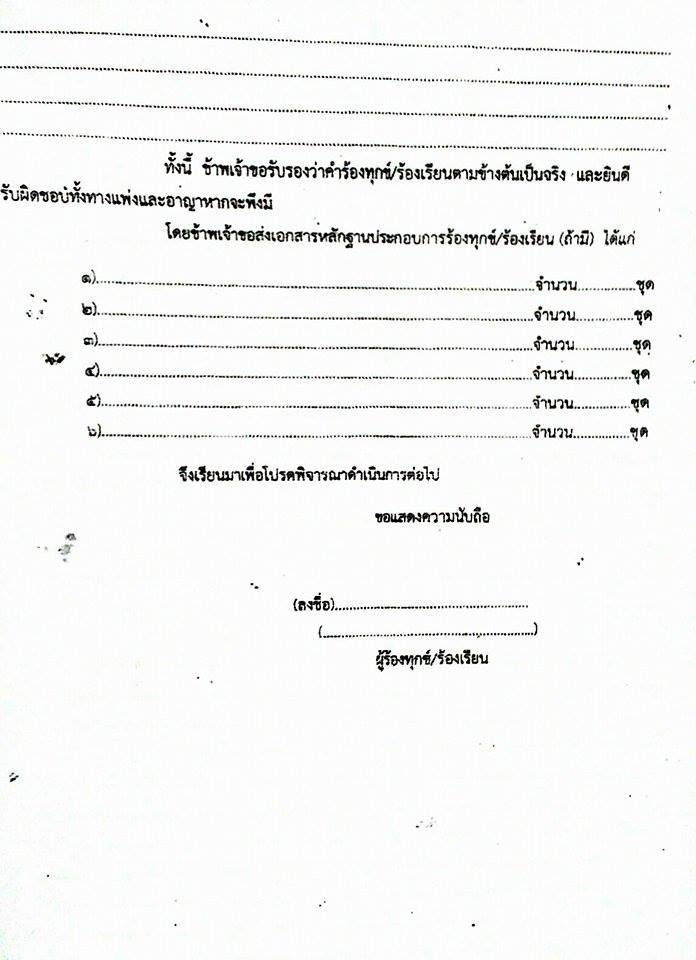 ทั้งนี้ ข้าพเจ้าขอรับรองว่าคำร้องทุกข์/ร้องเรียนตามข้างต้นเป็นจริง และยินดี
รับผิดชอบทั้งทางแพ่งและอาญาหากจะพึงมี
โดยข้าพเจ้าขอส่งเอกสารหลักฐานประกอบการร้องทุกข์/ร้องเรียน (ถ้ามี) ได้แก่
๑)......................................................จำนวน...............ชุด
๒)......................................................จำนวน...............ชุด
๓)......................................................จำนวน...............ชุด
๔)......................................................จำนวน...............ชุด
๕)......................................................จำนวน...............ชุด
๖)......................................................จำนวน...............ชุด
จึงเรียนมาเพื่อโปรดพิจารณาดำเนินการต่อไป
ขอแสดงความนับถือ
(ลงชื่อ)................................................
(......................................................)
ผู้ร้องทุกข์/ร้องเรียน